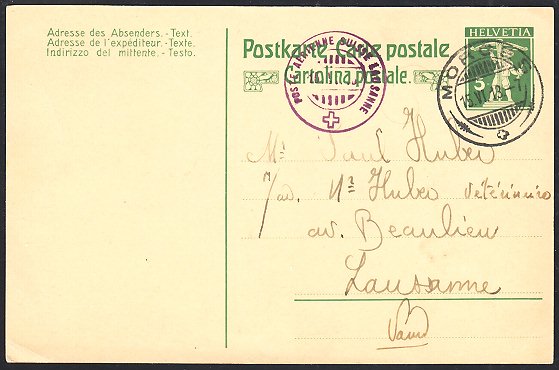 Adresse des Absenders. - Text.
Adresse de l'expéditeur. - Texte.
Indirizzo del mittente. - Testo.
HELVETIA
5
Postkarte Carte postale
Cartolina postale.
POSTE AÉRIENNE SUISSE LAUSANNE
MORGES
15.VI.13.-7
Mr Paul Huber
Huber vétérinaire
av. Beaulieu
Lausanne
Vaud